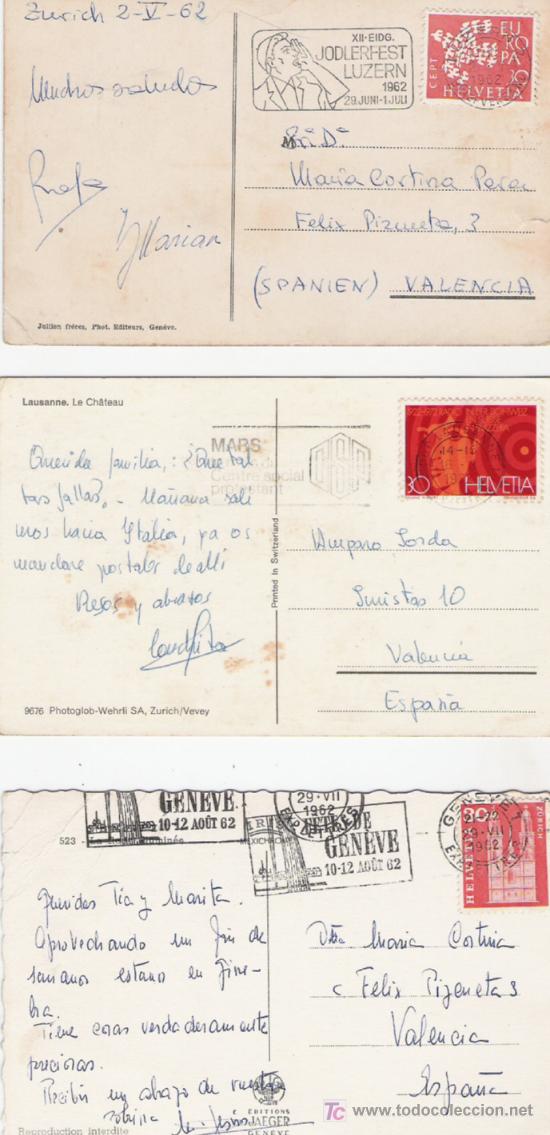 Zurich 2-V-62
XII·EIDG.
JODLERFEST
LUZERN
1962
29.JUNI-1.JULI
CEPT
EUROPA
30
HELVETIA
Muchos saludos
Maria Cortina
Felix Pizcueta, 3
y Marian
(SPANIEN) VALENCIA
Jullien frères, Phot. Editeurs, Genève.
Lausanne. Le Château
MARS
Centre social
protestant
CSP
30
HELVETIA
Querida familia, : ¿Que tal
las fallas, - Mañana sali
mos hacia Italia, ya os
mandare postales de alli
Besos y abrazos
Conchita
Printed in Switzerland
Amparo
10
Valencia
España
9676 Photoglob-Wehrli SA, Zurich/Vevey
GENÈVE
10-12 AOÛT 62
29·VII
1962
FÊTES DE
GENÈVE
10-12 AOÛT 62
GENÈVE
21-22
29·VII
1962
20
HELVETIA
ZÜRICH
523
Queridas Tia y Marita.
Aprovechando un fin de
semana estamos en Gine-
bra.
Tiene cosas verdaderamente
preciosas.
Recibir un abrazo de vuestra
sobrina
Maria Cortina
c Felix Pizcueta 3
Valencia
España
EDITIONS
JAEGER
GENÈVE
Reproduction interdite
TC todocoleccion.net